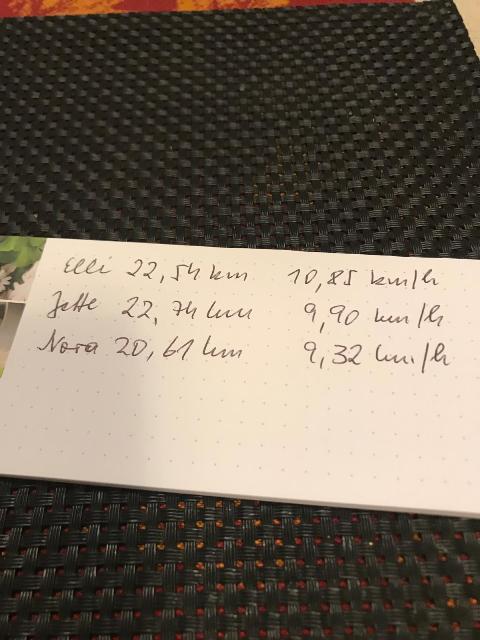 Elli 22,54 km 10,85 km/h
Jette 22,74 km 9,90 km/h
Nora 20,61 km 9,32 km/h